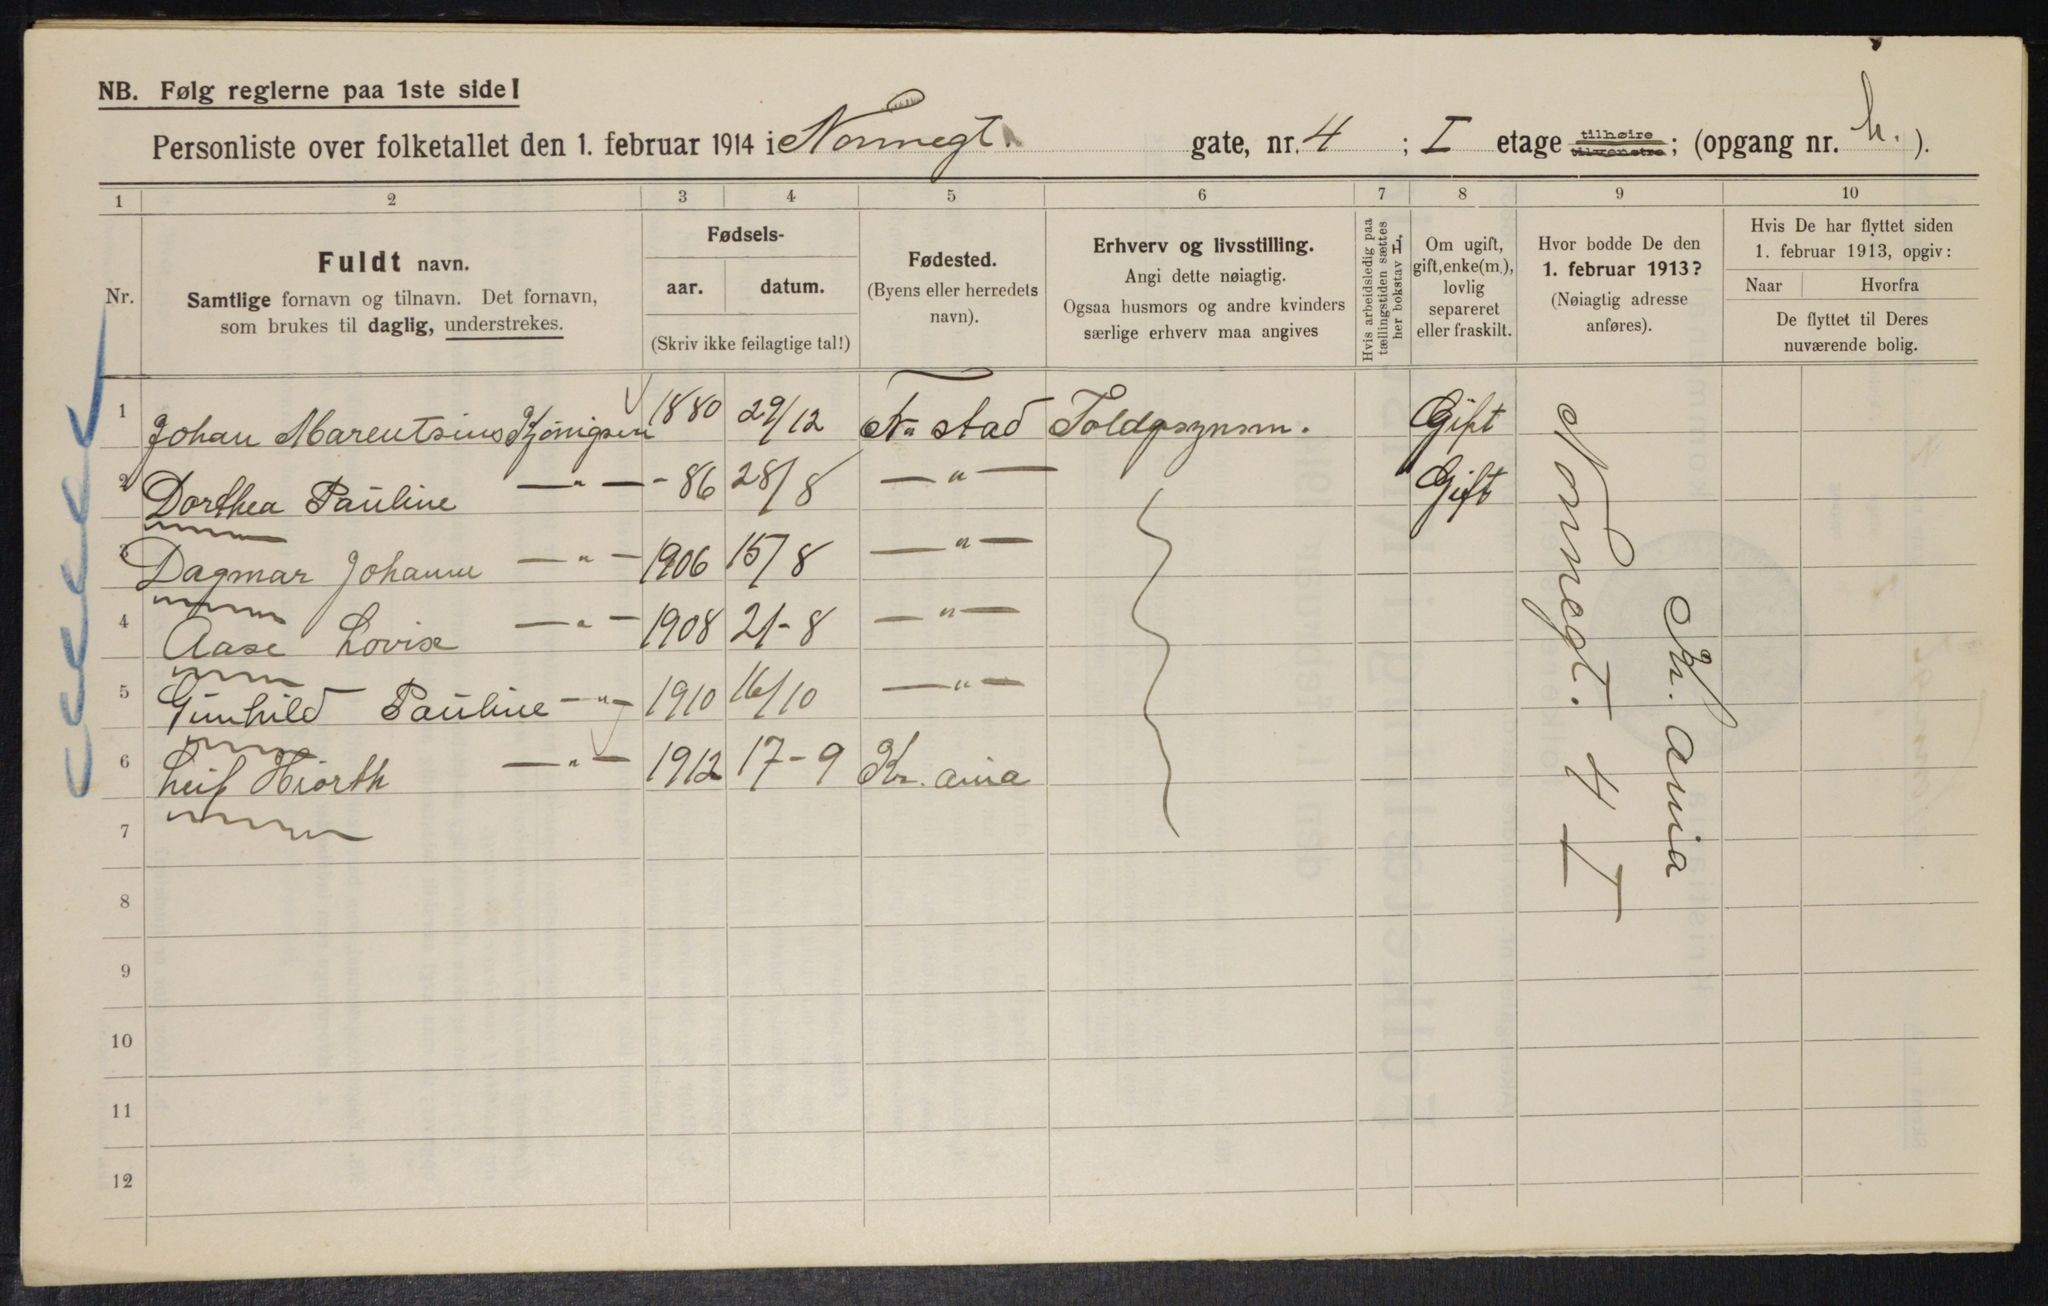 NB. Følg reglerne paa 1ste side!
Personliste over folketallet den 1. februar 1914 i Nonnegt. gate, nr. 4 ; I etage tilhøire tilvenstre ; (opgang nr. h. ).
1 2 3 4 5 6 7 8 9 10
Nr.
Fuldt navn.
Samtlige fornavn og tilnavn. Det fornavn,
som brukes til daglig, understrekes.
Fødsels-
aar. datum.
(Skriv ikke feilagtige tal!)
Fødested.
(Byens eller herredets
navn).
Erhverv og livsstilling.
Angi dette nøiagtig.
Ogsaa husmors og andre kvinders
særlige erhverv maa angives
Hvis arbeidsledig paa
tællingstiden sættes
her bokstav L.
Om ugift,
gift, enke(m.),
lovlig
separeret
eller fraskilt.
Hvor bodde De den
1. februar 1913?
(Nøiagtig adresse
anføres).
Hvis De har flyttet siden
1. februar 1913, opgiv:
Naar Hvorfra
De flyttet til Deres
nuværende bolig.
1 Johan Marentsius 1880 29/12 stad Gift
2 Dorthea Pauline —„— - 86 28/8 —„— Gift
3 Dagmar Johanne —„— 1906 15/8 —„—
4 Aase Lovise —„— 1908 21-8 —„—
5 Gunhild Pauline —„— 1910 16/10 —„—
6 Leif Hiorth —„— 1912 17-9 Kr. ania
7
8
9
10
11
12
Nonnegt. 4 I
Kr. ania